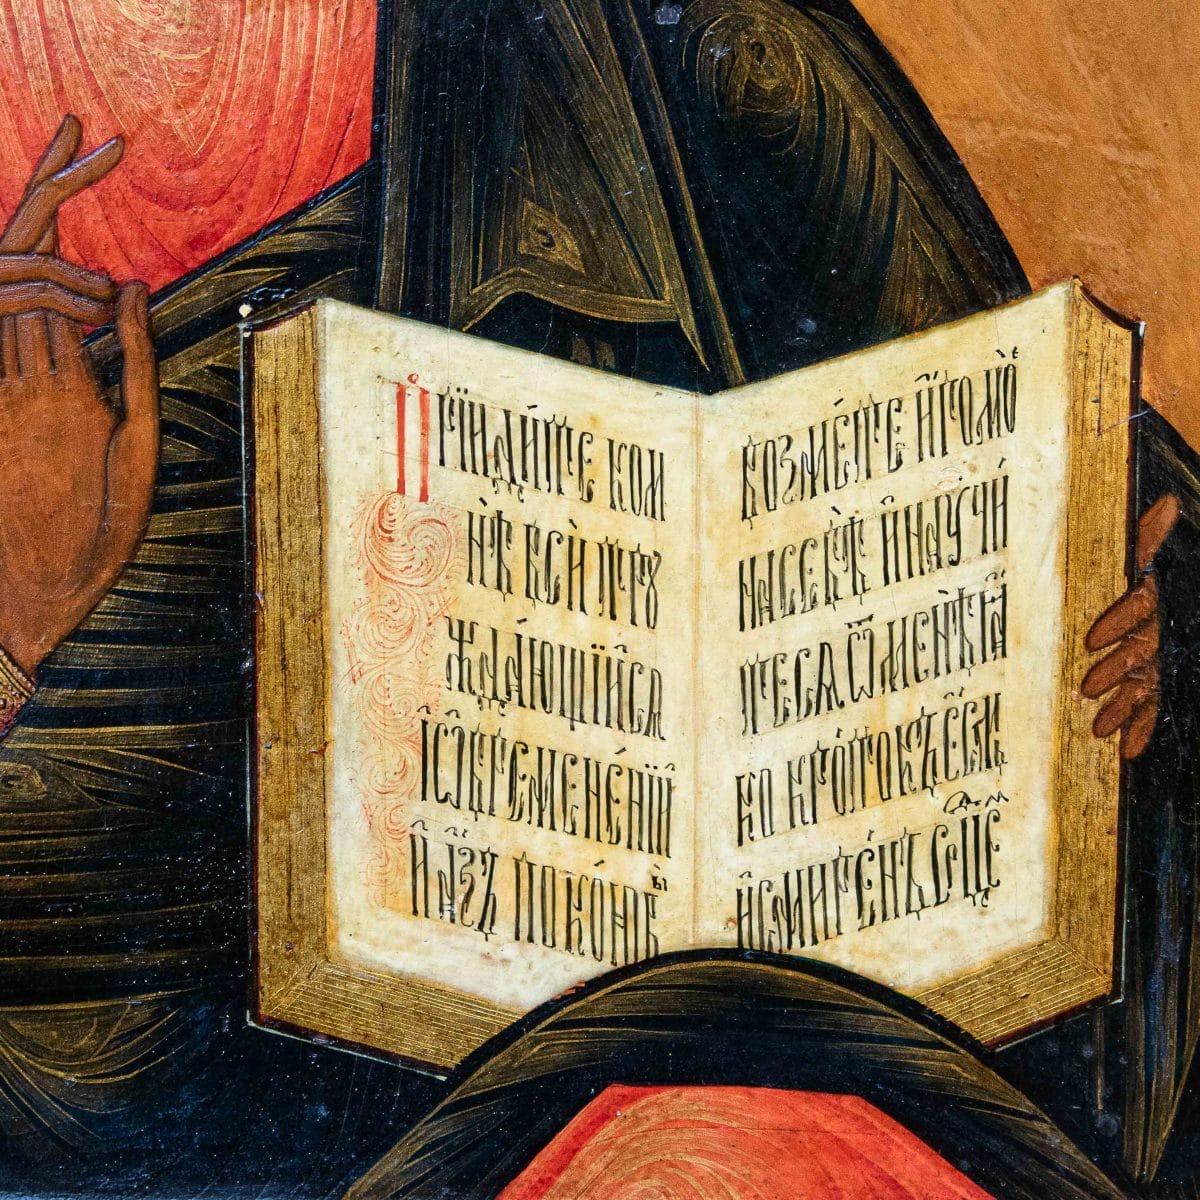 Прїиди́те ко м
нѣ̀ всѝ трꙋ
жда́ющїи̑сѧ
и̑ ѡ̑бремене́нїи
и̑ а҆́зъ поко́ю вы̀
возме́те и̑́го моѐ
на себѣ̀ и̑ наꙋчи́
тесѧ ѿ менѣ̀ ꙗ҆́
ко кро́токъ є҆́смь
и̑ смире́нъ се́рдцемъ